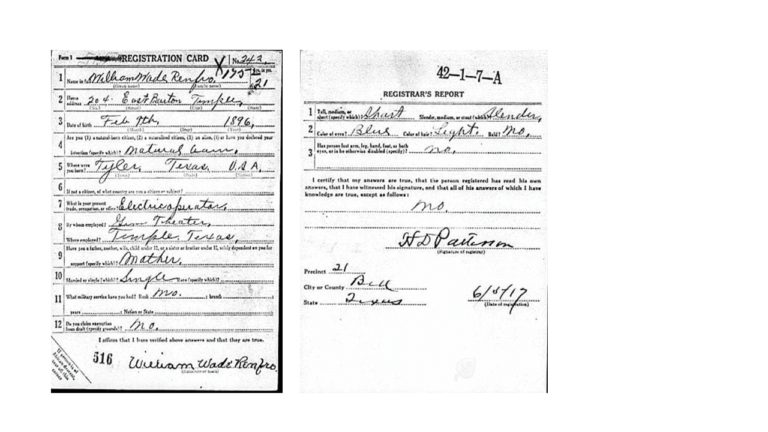 Form 1 REGISTRATION CARD No. 242
1 Name in full William Wade Renfro. 21
2 Home address 204 East Barton Temple,
3 Date of birth Feb 9th, 1896,
4 Are you (1) a natural-born citizen, (2) a naturalized citizen, (3) an alien, (4) or have you declared your
intention (specify which)? Natural born,
5 Where were you born? Tyler, Texas, U.S.A,
6 If not a citizen, of what country are you a citizen or subject?
7 What is your present trade, occupation, or office? Electric operator,
8 By whom employed? Gem Theater,
Where employed? Temple, Texas,
9 Have you a father, mother, wife, child under 12, or a sister or brother under 12, solely dependent on you for
support (specify which)? Mother.
10 Married or single (which)? Single Race (specify which)?
11 What military service have you had? Rank no. ; branch
years ; Nation or State
12 Do you claim exemption from draft (specify grounds)? No.
I affirm that I have verified above answers and that they are true.
516 William Wade Renfro.
42-1-7-A
REGISTRAR'S REPORT
1 Tall, medium, or short (specify which)? Short Slender, medium, or stout (which)? Slender,
2 Color of eyes? Blue Color of hair? Light. Bald? No.
3 Has person lost arm, leg, hand, foot, or both
eyes, or is he otherwise disabled (specify)? no.
I certify that my answers are true, that the person registered has read his own
answers, that I have witnessed his signature, and that all of his answers of which I have
knowledge are true, except as follows:
no.
H D Patterson
(Signature of registrar)
Precinct 21
City or County Bell
State Texas
6/5/17
(Date of registration)